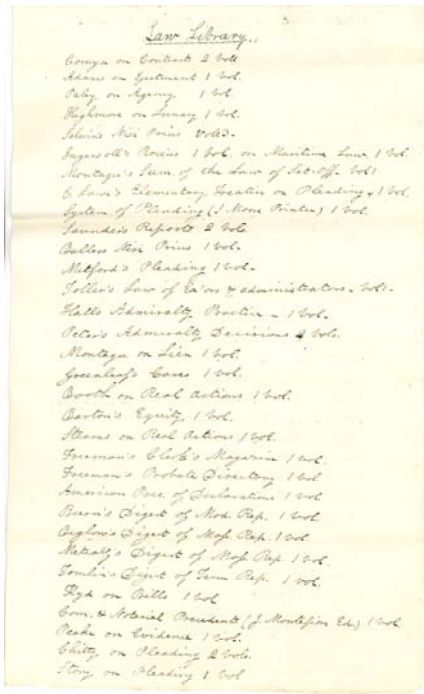 Law Library.
Comyn on Contract 2 Vols
Adams on Ejectment 1 Vol.
Paley on Agency 1 Vol.
Highmore on Lunacy 1 Vol.
Selwin's Nisi Prius Vols 3.
Ingersoll's Roccus 1 Vol. on Maritime Law. 1 Vol.
Montagu's Sum. of the Law of Set-off. Vol 1
E Lawe's Elementary Treatise on Pleading 1 Vol.
System of Pleading (J. Moore Printer) 1 Vol.
Saunders Reports 2 Vols.
Bullers Nisi Prius 1 Vol.
Mitford's Pleading 1 Vol.
Toller's Law of Ex'ors & administrators. Vol 1.
Halls Admiralty Practice - 1 Vol.
Peter's Admiralty Decisions 2 Vols.
Montagu on Lien 1 Vol.
Greenleaf's Cases 1 Vol.
Booth on Real Actions 1 Vol.
Barton's Equity 1 Vol.
Stearns on Real Actions 1 Vol.
Freeman's Clerk's Magazine 1 Vol.
Freeman's Probate Directory 1 Vol
American Prec. of Declarations 1 Vol
Digest of Mod. Rep. 1 Vol
Bigelow's Digest of Mass. Rep. 1 Vol
Metcalf's Digest of Mass Rep 1 Vol.
Tomlin's Digest of Term Rep. 1 Vol.
Kyd on Bills 1 Vol
Com. & Notarial Precedents (J. Montefiore Ed.) 1 Vol
Peake on Evidence 1 Vol.
Chitty on Pleading 2 Vols.
Story on Pleading 1 Vol